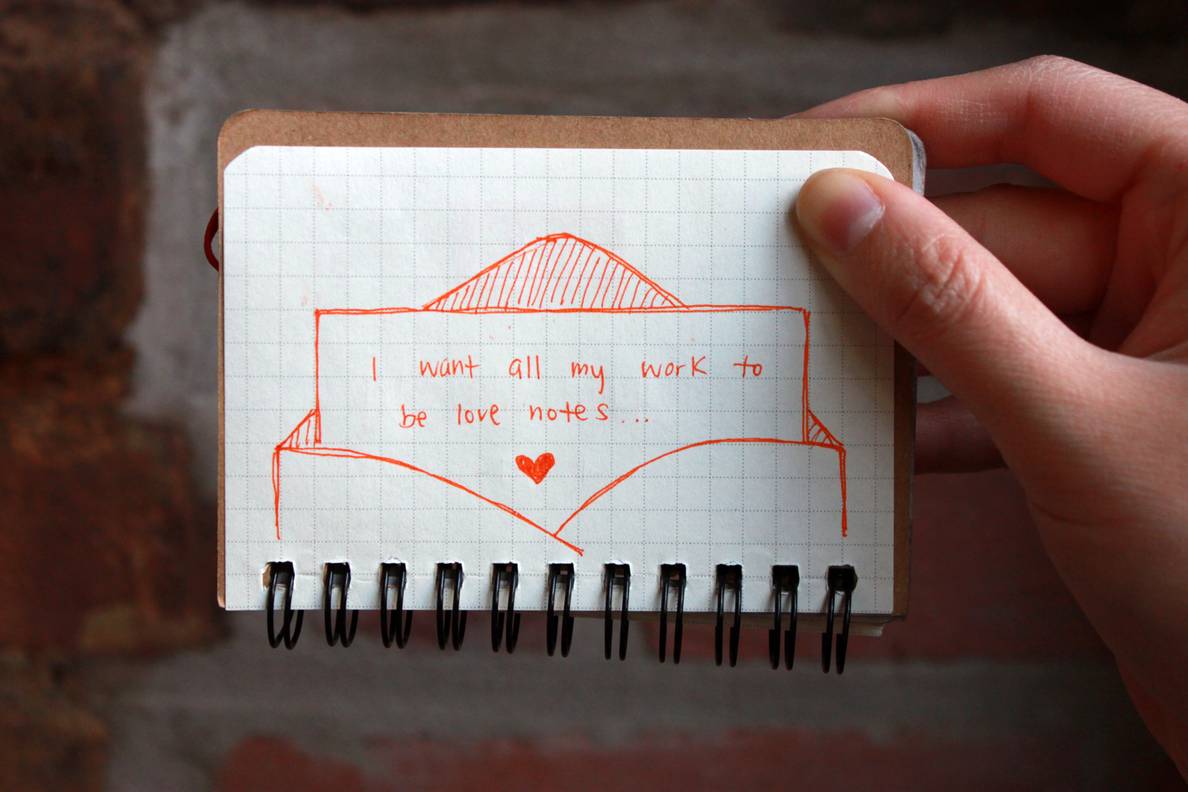 I want all my work to
be love notes...